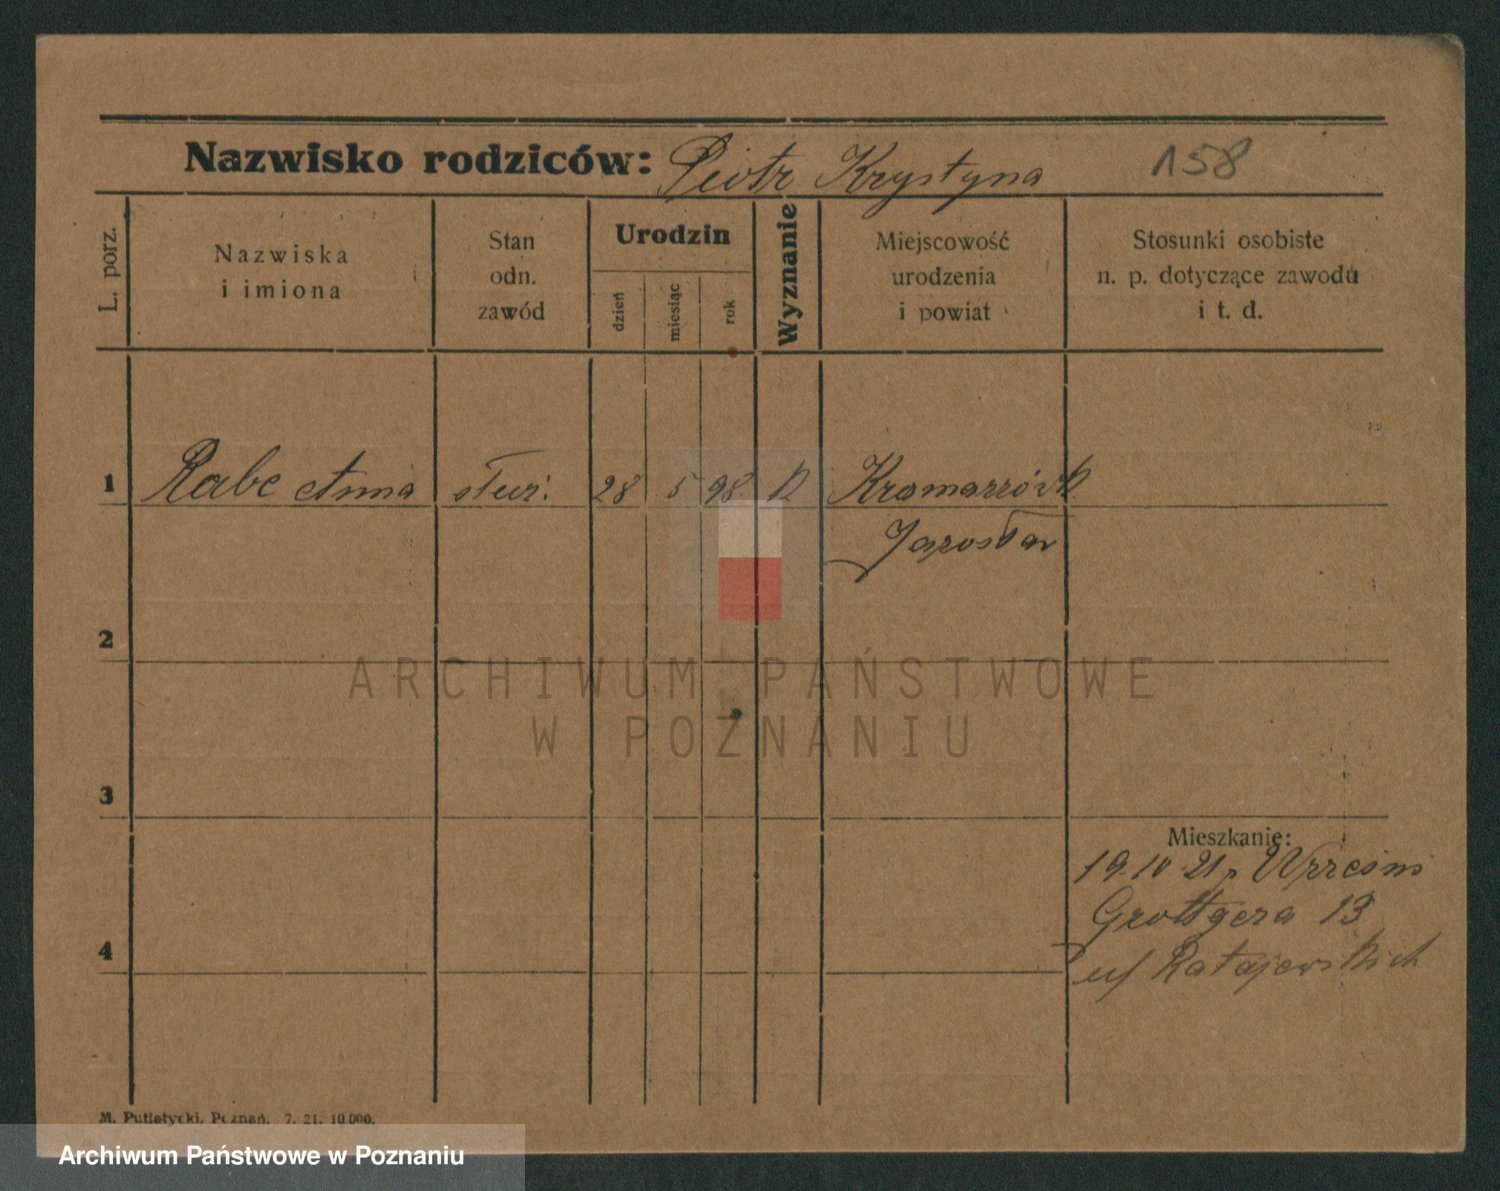 Nazwisko rodziców: Piotr Krystyna 158
L. porz.
Nazwiska
i imiona
Stan
odn.
zawód
Urodzin
dzień
miesiąc
rok
Wyznanie
Miejscowość
urodzenia
i powiat
Stosunki osobiste
n. p. dotyczące zawodu
i t. d.
1 Rabe Anna służ. 28 5 98 R
Jarosław
2
3
4
Mieszkanie:
19 10 21
Grottgera 13
u/ Ratajewskich
M. Putiatycki, Poznań. 7. 21. 10 000.
ARCHIWUM PAŃSTWOWE
W POZNANIU
Archiwum Państwowe w Poznaniu